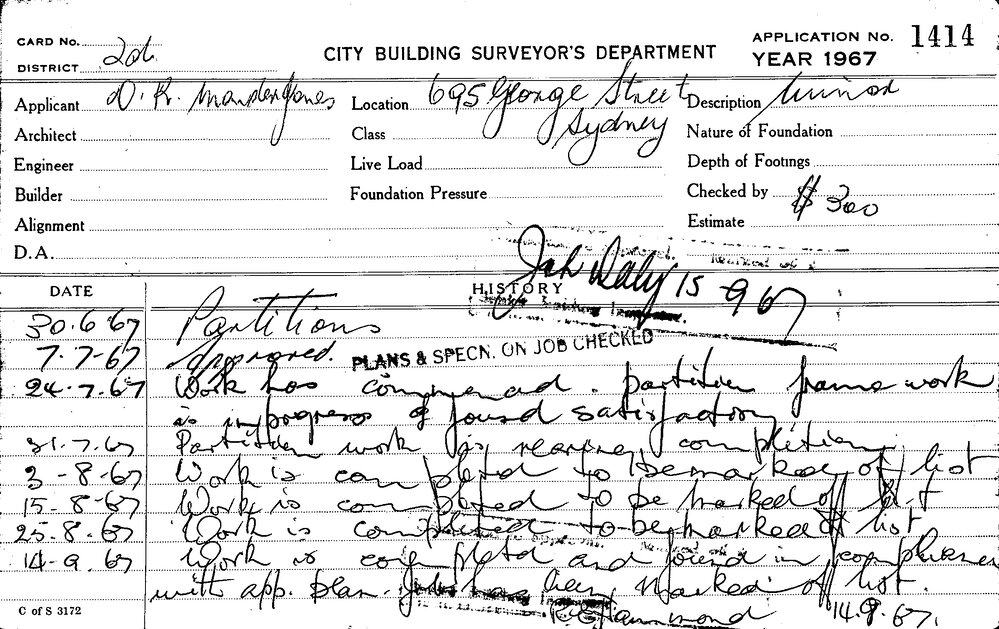 CARD No. 2d
CITY BUILDING SURVEYOR'S DEPARTMENT
APPLICATION No. 1414
DISTRICT
YEAR 1967
Applicant D. R. Marsden Jones
Location 695 George Street
Description Minor
Architect
Class Sydney
Nature of Foundation
Engineer
Live Load
Depth of Footings
Builder
Foundation Pressure
Checked by
Alignment
Estimate $ 300
D.A.
Daly 15-9-67
DATE
HISTORY
30.6.67 Partitions
7.7.67 Approved. PLANS & SPECN. ON JOB CHECKED
24.7.67 Work has commenced. partition frame work
is in progress & found satisfactory
31.7.67 Partition work is nearing completion
3-8-67 Work is completed to be marked off list
15-8-67 Work is completed to be marked off list
25.8.67 Work is completed to be marked off list
14-9.67 Work is completed and found in compliance
with app. plan. Job has been marked off list.
Hammond 14.9.67.
C of S 3172